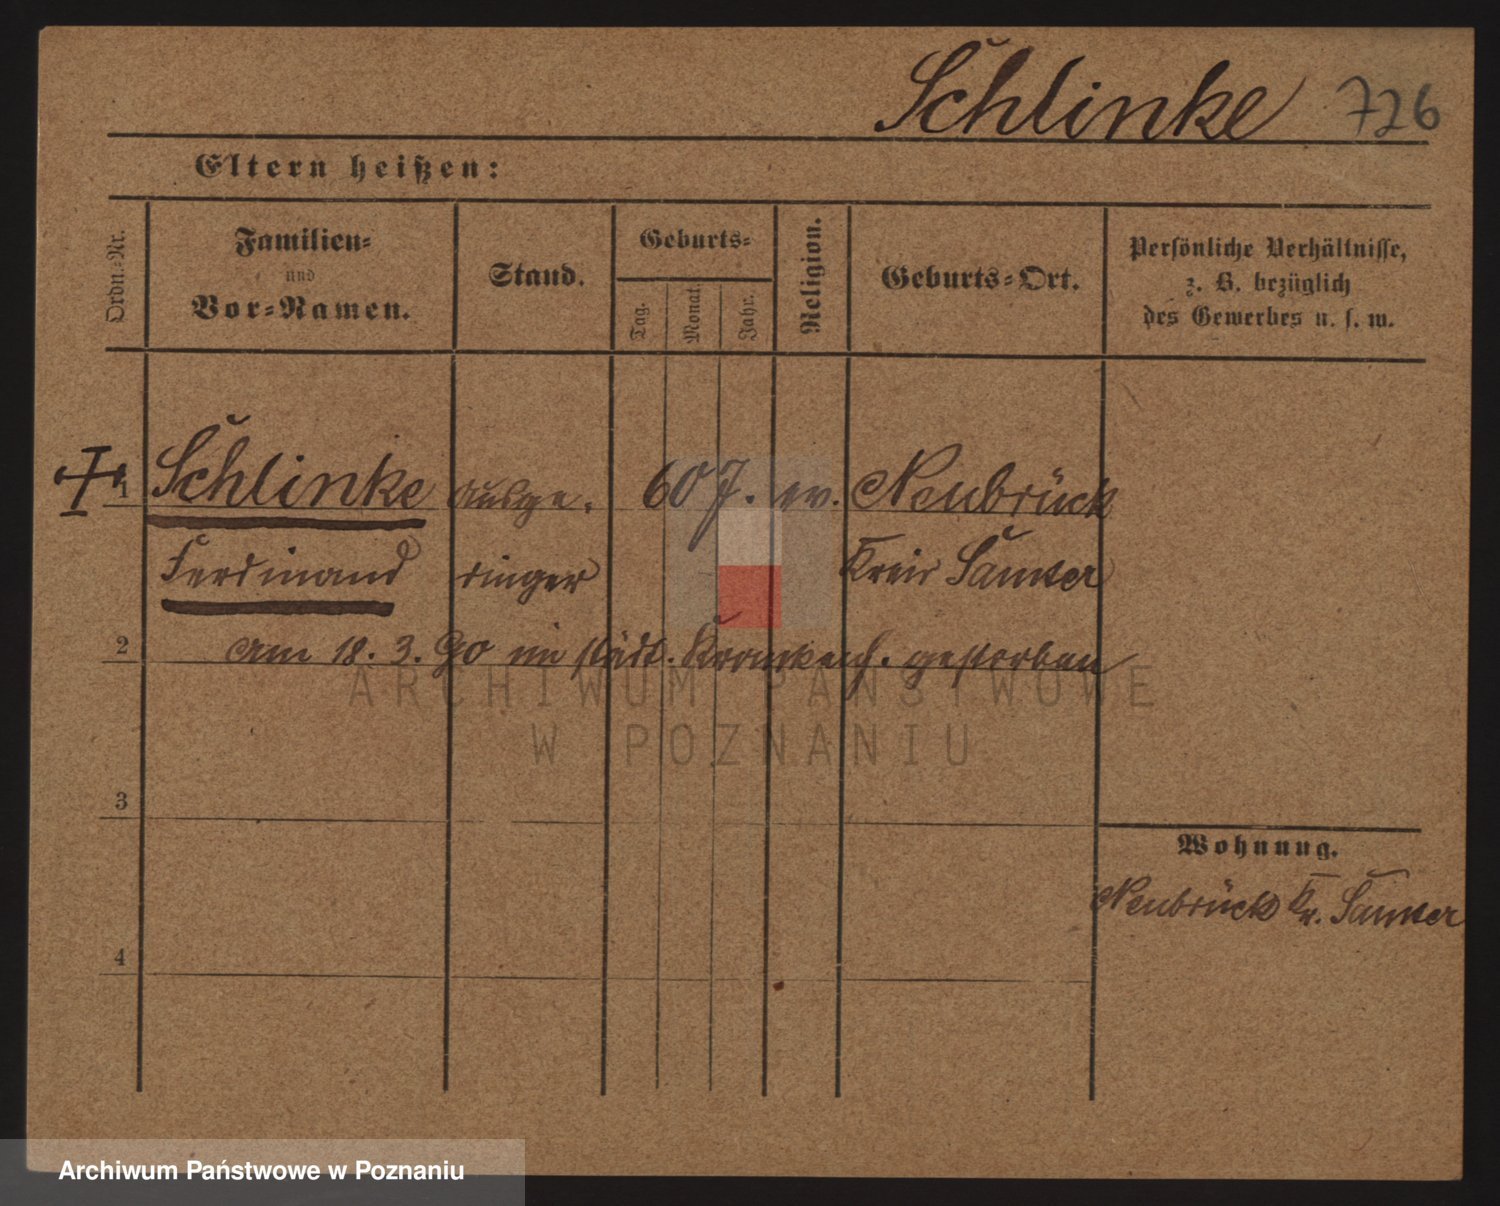 Schlinke 726
Eltern heißen:
Ordn.-Nr.
Familien-
und
Vor-Namen.
Stand.
Geburts-
Tag.
Monat.
Jahr.
Religion.
Geburts-Ort.
Persönliche Verhältnisse,
z. B. bezüglich
des Gewerbes u. s. w.
1 Schlinke Ausge. 60 J. ev. Neubrück
Ferdinand dinger Kreis Samter
2 am 18. 3. 90 im städt. Krankenh. gestorben
ARCHIWUM PAŃSTWOWE
W POZNANIU
3
Wohnung.
Neubrück Kr. Samter
4
Archiwum Państwowe w Poznaniu